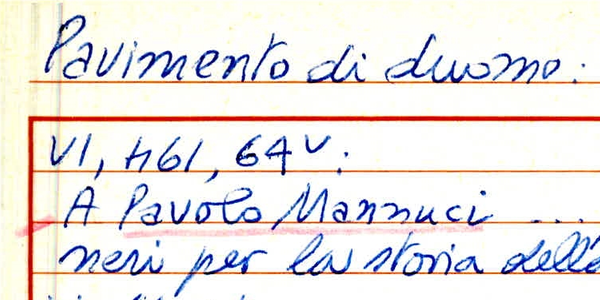 Pavimento di duomo:
VI, 461, 64v:
A Pavolo Mannuci ...
neri per la storia della